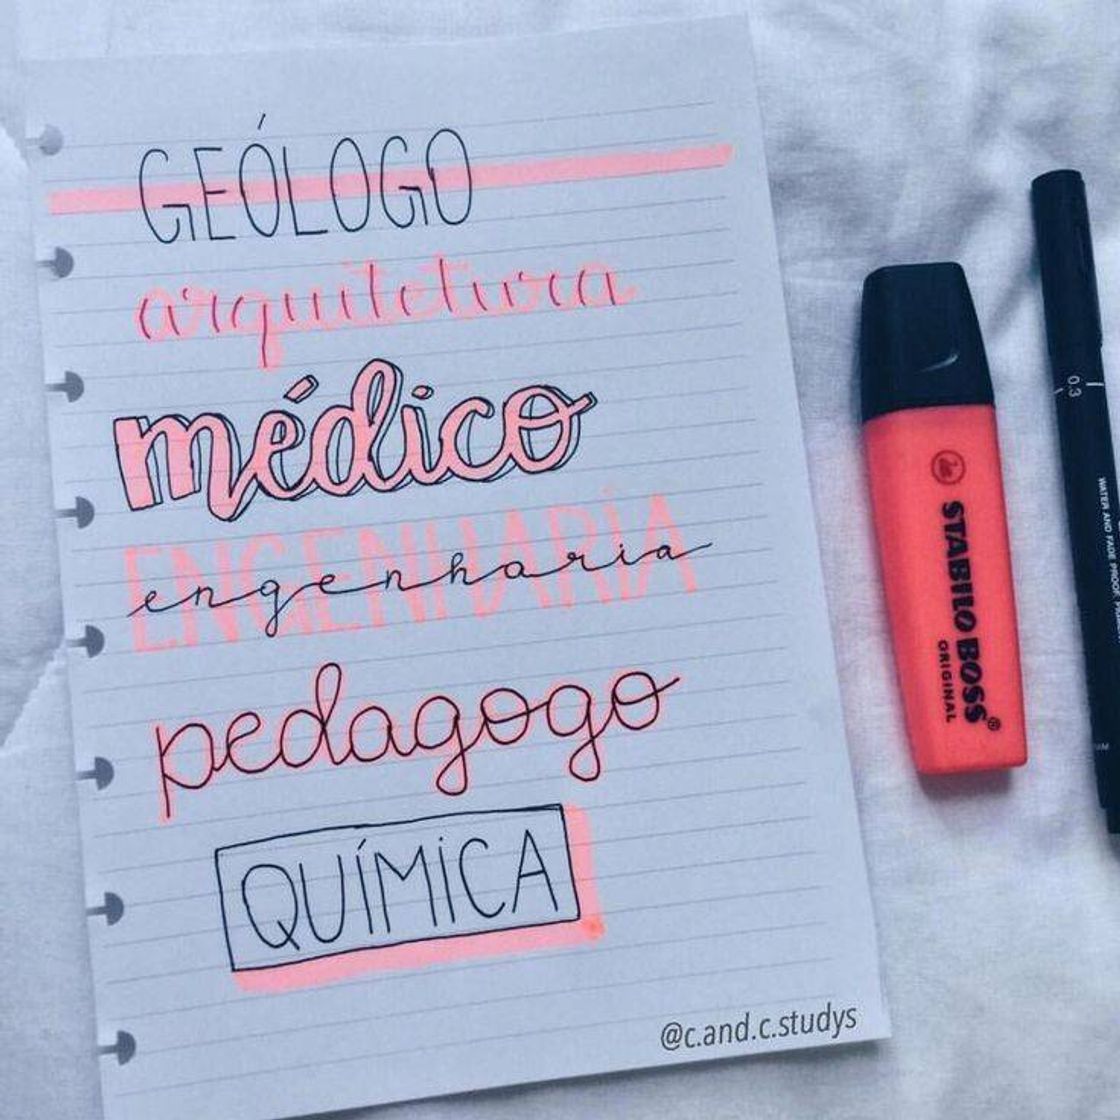 GEÓLOGO
arquitetura
médico
ENGENHARIA
engenharia
pedagogo
QUÍMiCA
@c.and.c.studys
STABILO BOSS®
ORIGINAL
0.3
WATER AND FADE PROOF